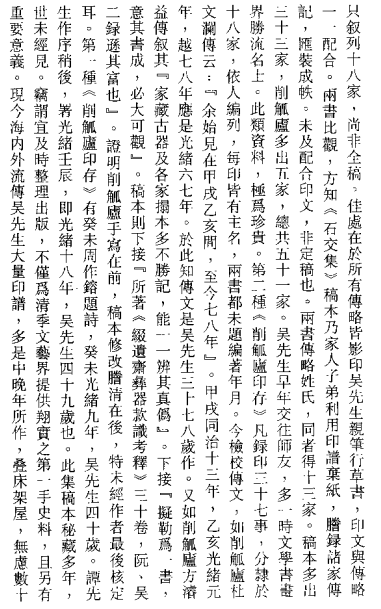 只叙列十八家，尚非全稿。佳處在於所有傳略皆影印吳先生親筆行草書，印文與傳略
一一配合。兩書比觀，方知《石交集》稿本乃家人子弟利用印譜棄紙，謄錄諸家傳
記，匯裝成帙。未及配合印文，非定稿也。兩書傳略姓氏，同者得十三家。稿本多出
三十三家，削觚廬多出五家，總共五十一家。吳先生早年交往師友，多一時文學書畫
界勝流名士。此類資料，極爲珍貴。第二種《削觚廬印存》凡錄印三十七事，分隷於
十八家，依人編列，每印皆有主名，兩書都未題編著年月。今檢校傳文，如削觚廬杜
文瀾傳云：『余始見在甲戌乙亥間，至今七八年』。甲戌同治十三年，乙亥光緒元
年，越七八年應是光緒六七年。於此知傳文是吳先生三十七八歲作。又如削觚廬方濬
益傳叙其『家藏古器及各家搨本多不勝記，能一一辨其真僞』。下接『擬勒爲一書，
意其書成，必大可觀』。稿本則下接『所著《綴遺齋彝器款識考釋》三十卷，阮、吳
二錄遜其富也』。證明削觚廬手寫在前，稿本修改謄清在後，特未經作者最後核定
耳。第一種《削觚廬印存》有癸未周作鎔題詩，癸未光緒九年，吳先生四十歲。譚先
生作序稍後，署光緒壬辰，即光緒十八年，吳先生四十九歲也。此集稿本秘藏多年，
世未經見。竊謂宜及時整理出版，不僅爲清季文藝界提供翔實之第一手史料，且另有
重要意義。現今海内外流傳吳先生大量印譜，多是中晚年所作，叠床架屋，無慮數十